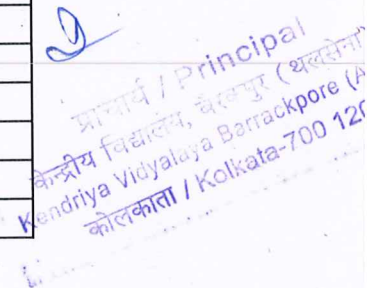 प्राचार्य / Principal
केन्द्रीय विद्यालय, बैरकपुर (थलसेना)
Kendriya Vidyalaya Barrackpore (A
कोलकाता / Kolkata-700 120